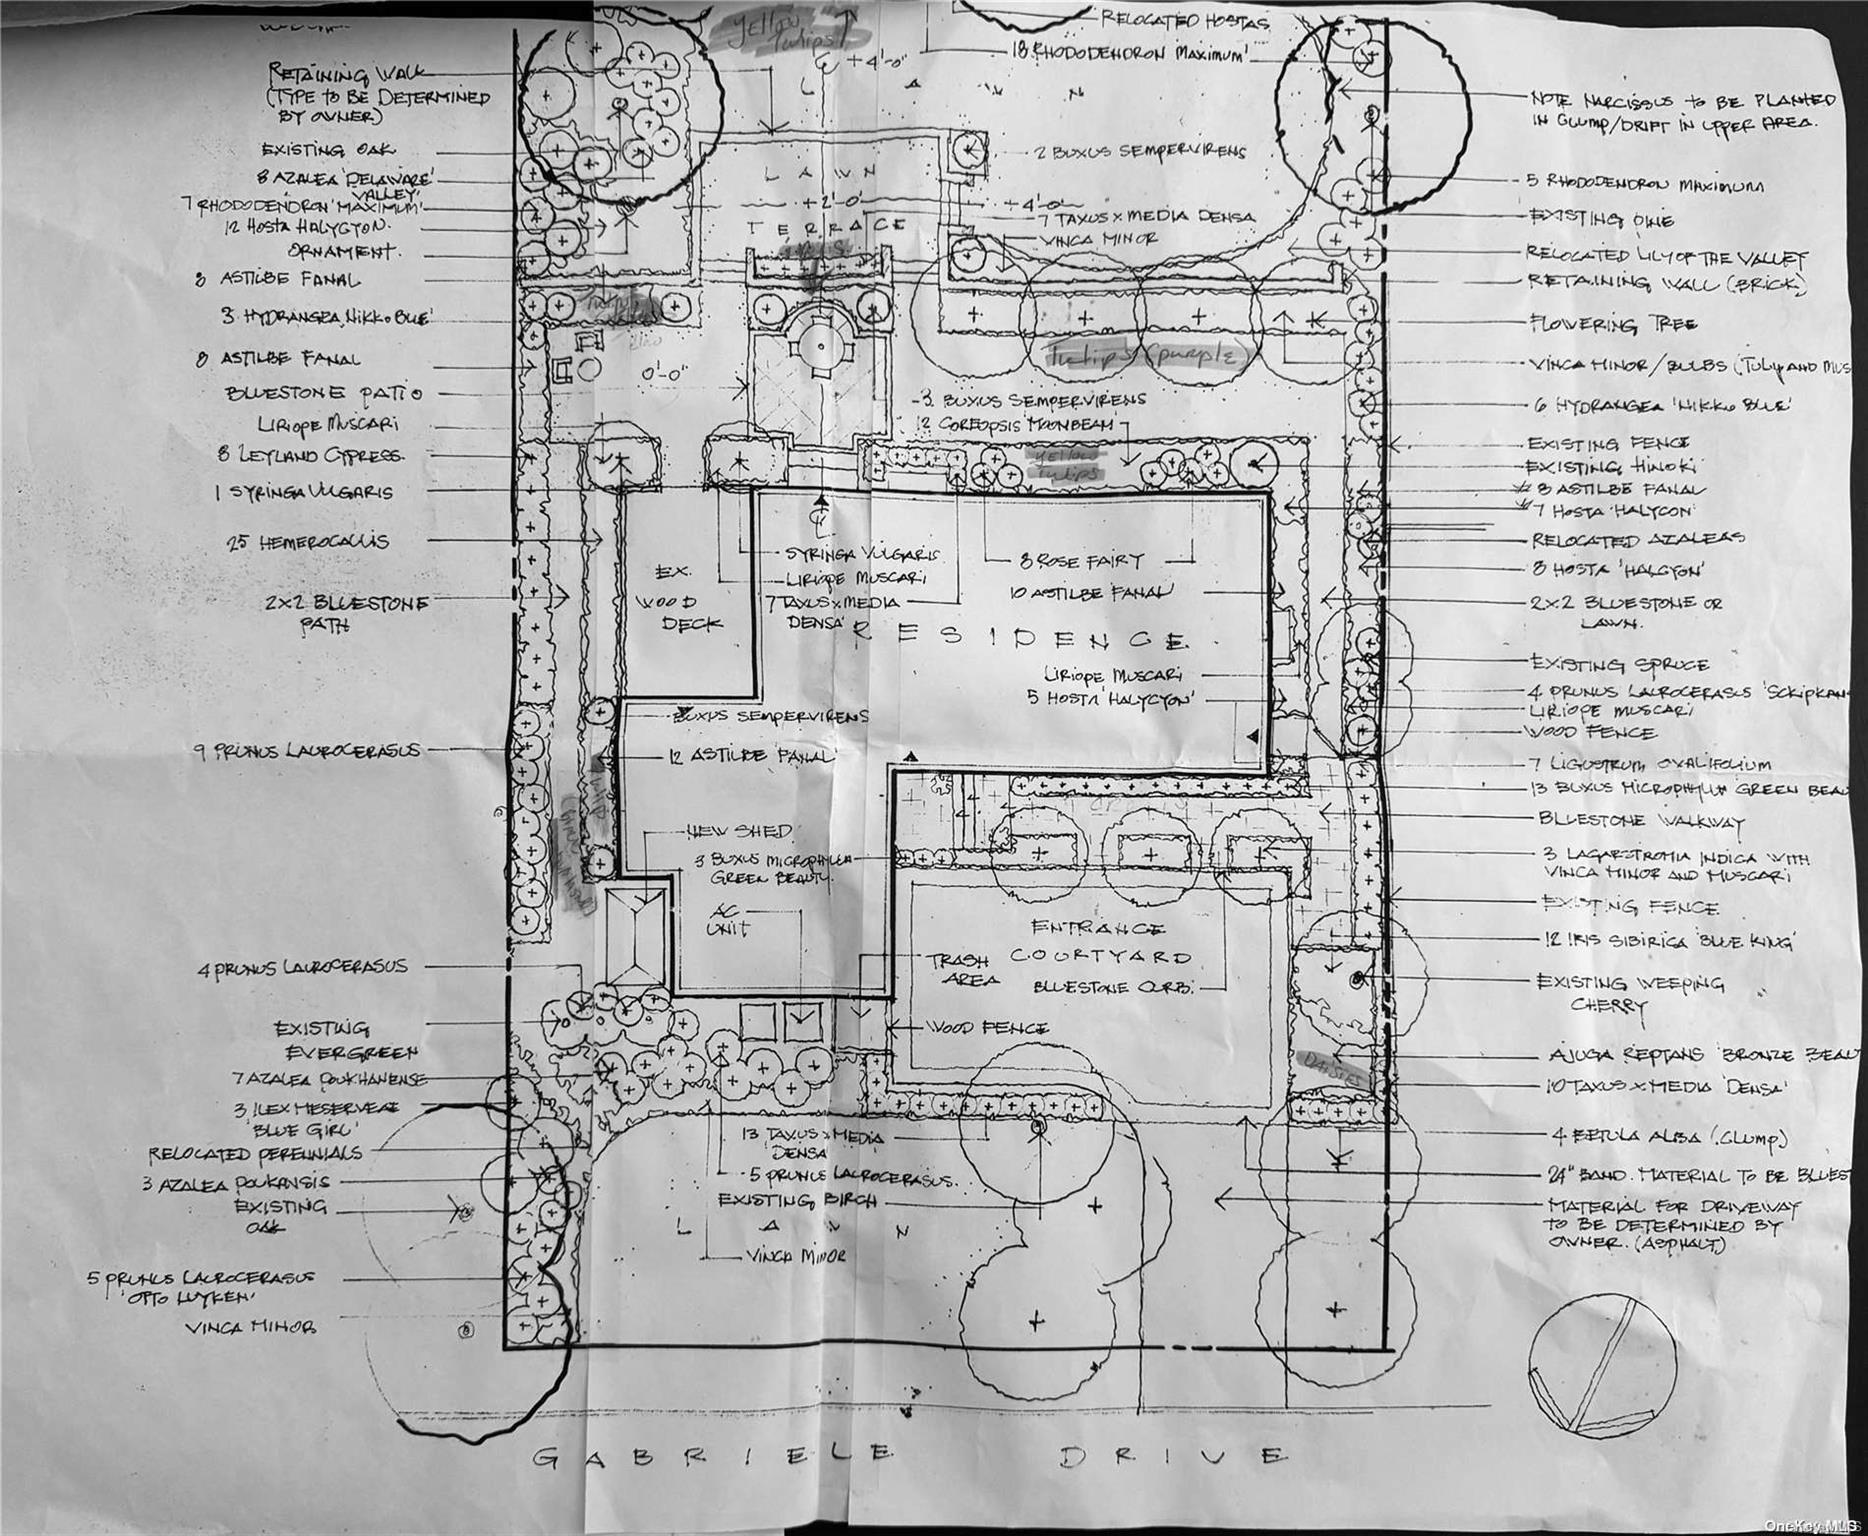 Yellow
Tulips
+4'-0"
L A W N
RELOCATED HOSTAS
18 RHODODENDRON MAXIMUM'
RETAINING WALL
(TYPE TO BE DETERMINED
BY OWNER)
EXISTING OAK
8 AZALEA 'DELAWARE
VALLEY'
7 RHODODENDRON 'MAXIMUM'
12 HOSTA HALYCYON.
ORNAMENT.
8 ASTILBE FANAL
3 HYDRANGEA 'NIKKO BLUE'
8 ASTILBE FANAL
BLUESTONE PATIO
LIRIOPE MUSCARI
8 LEYLAND CYPRESS.
1 SYRINGA VULGARIS
25 HEMEROCALLIS
2X2 BLUESTONE
PATH
9 PRUNUS LAUROCERASUS
4 PRUNUS LAUROCERASUS
EXISTING
EVERGREEN
7 AZALEA POUKHANENSE
3 ILEX MESERVEAE
'BLUE GIRL'
RELOCATED PERENNIALS
3 AZALEA POUKANSIS
EXISTING
OAK
5 PRUNUS LAUROCERASUS
'OTTO LUYKEN'
VINCA MINOR
LAWN
+2'-0"
TERRACE
2 BUXUS SEMPERVIRENS
+4'-0"
7 TAXUS X MEDIA DENSA
VINCA MINOR
Tulips (purple)
0'-0"
3 BUXUS SEMPERVIRENS
12 COREOPSIS 'MOONBEAM'
Yellow
Tulips
EX.
WOOD
DECK
SYRINGA VULGARIS
LIRIOPE MUSCARI
7 TAXUS X MEDIA
DENSA'
8 ROSE FAIRY
10 ASTILBE FANAL'
RESIDENCE
LIRIOPE MUSCARI
5 HOSTA 'HALYCYON'
BUXUS SEMPERVIRENS
12 ASTILBE 'FANAL'
NEW SHED
3 BUXUS MICROPHYLLA
GREEN BEAUTY.
AC
UNIT
TRASH
AREA
ENTRANCE
COURTYARD
BLUESTONE CURB.
WOOD FENCE
Daisies
13 TAXUS X MEDIA
DENSA'
5 PRUNUS LAUROCERASUS.
EXISTING BIRCH
L A W N
VINCA MINOR
NOTE NARCISSUS TO BE PLANTED
IN CLUMP/DRIFT IN UPPER AREA.
5 RHODODENDRON MAXIMUM
EXISTING PINE
RELOCATED LILY OF THE VALLEY
RETAINING WALL (BRICK)
FLOWERING TREE
VINCA MINOR/BULBS (TULIP AND MUS
6 HYDRANGEA 'NIKKO BLUE'
EXISTING FENCE
EXISTING HINOKI
8 ASTILBE FANAL
7 HOSTA 'HALYCON'
RELOCATED AZALEAS
8 HOSTA 'HALCYON'
2X2 BLUESTONE OR
LAWN.
EXISTING SPRUCE
4 PRUNUS LAUROCERASUS 'SCKIPKAN
LIRIOPE MUSCARI
WOOD FENCE
7 LIGUSTRUM OVALIFOLIUM
13 BUXUS MICROPHYLLA GREEN BEAU
BLUESTONE WALKWAY
3 LAGARSTROMIA INDICA WITH
VINCA MINOR AND MUSCARI
EXISTING FENCE
12 IRIS SIBIRICA 'BLUE KING'
EXISTING WEEPING
CHERRY
AJUGA REPTANS 'BRONZE BEAU
10 TAXUS X MEDIA 'DENSA'
4 BETULA ALBA (CLUMP)
24" BAND. MATERIAL TO BE BLUES
MATERIAL FOR DRIVEWAY
TO BE DETERMINED BY
OWNER. (ASPHALT)
GABRIELE DRIVE
OneKey MLS